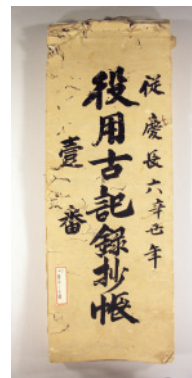 従慶長六辛丑年
役用古記録抄帳
壹番